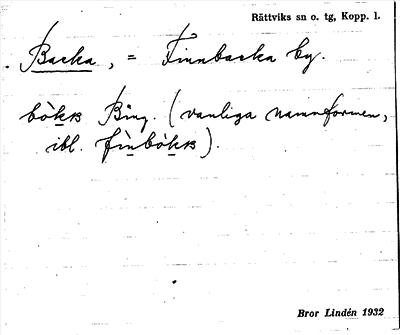 Rättviks sn o. tg, Kopp. l.
Backa, = Finnbacka by.
bòkʙ Bing. (vanliga namnformen,
ibl. fìnbòkʙ).
Bror Lindén 1932